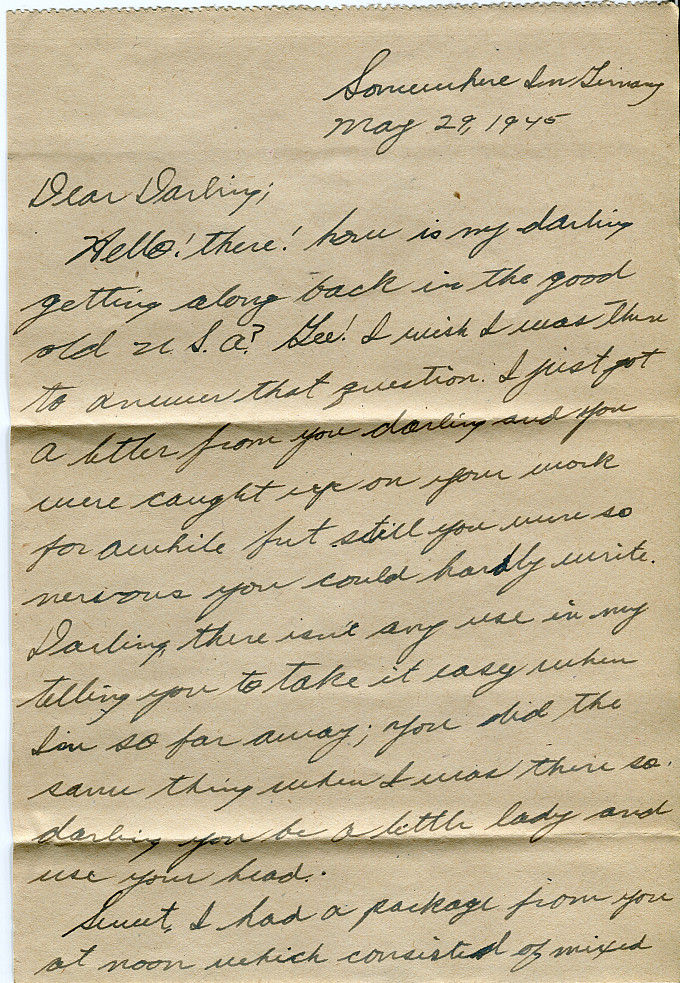 Somewhere In Germany
May 29, 1945
Dear Darling;
Hello! there! how is my darling
getting along back in the good
old U.S.A? Gee! I wish I was there
to answer that question. I just got
a letter from you darling and you
were caught up on your work
for awhile but still you were so
nervous you could hardly write.
Darling, there isn't any use in my
telling you to take it easy when
I'm so far away; you did the
same thing when I was there so.
darling you be a little lady and
use your head.
Sweet, I had a package from you
at noon which consisted of mixed